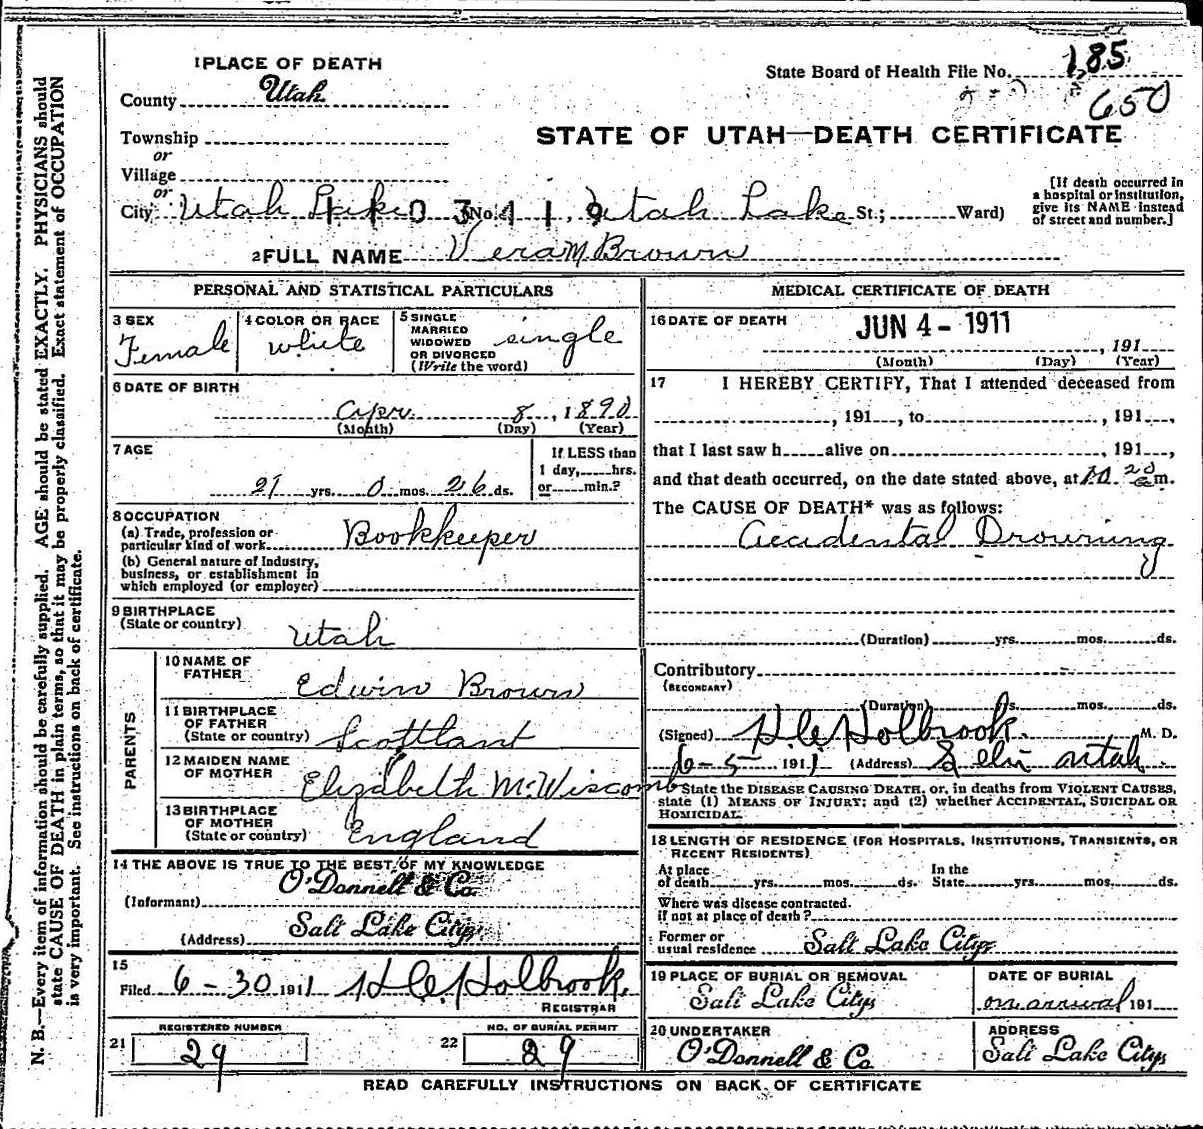 185
State Board of Health File No.
650
1 PLACE OF DEATH
County Utah
STATE OF UTAH—DEATH CERTIFICATE
Township
or
Village
or
City Utah Lake No. Utah Lake St.; Ward)
1 1 0 3 4 1 9
[If death occurred in a hospital or institution, give its NAME instead of street and number.]
2 FULL NAME Vera M Brown
PERSONAL AND STATISTICAL PARTICULARS
3 SEX
Female
4 COLOR OR RACE
white
5 SINGLE
MARRIED
WIDOWED
OR DIVORCED
(Write the word)
single
6 DATE OF BIRTH
Apr. 8, 1890
(Month) (Day) (Year)
7 AGE
21 yrs. 0 mos. 26 ds.
If LESS than
1 day, hrs.
or min.?
8 OCCUPATION
(a) Trade, profession or
particular kind of work Bookkeeper
(b) General nature of Industry,
business, or establishment in
which employed (or employer)
9 BIRTHPLACE
(State or country)
Utah
PARENTS
10 NAME OF
FATHER
Edwin Brown
11 BIRTHPLACE
OF FATHER
(State or country) Scottlant
12 MAIDEN NAME
OF MOTHER
Elizabeth McWiscomb
13 BIRTHPLACE
OF MOTHER
(State or country) England
14 THE ABOVE IS TRUE TO THE BEST OF MY KNOWLEDGE
O'Donnell & Co.
(Informant)
Salt Lake City
(Address)
15
Filed 6-30 1911 H.C. Holbrook.
REGISTRAR
REGISTERED NUMBER
21 29
NO. OF BURIAL PERMIT
22 29
MEDICAL CERTIFICATE OF DEATH
16 DATE OF DEATH JUN 4 - 1911
, 191
(Month) (Day) (Year)
17 I HEREBY CERTIFY, That I attended deceased from
, 191 , to , 191 ,
that I last saw h alive on , 191 ,
and that death occurred, on the date stated above, at m.
The CAUSE OF DEATH* was as follows:
Accidental Drowning
(Duration) yrs. mos. ds.
Contributory
(SECONDARY)
(Duration) yrs. mos. ds.
(Signed) H.C. Holbrook. M. D.
6-5 1911 (Address) Utah
State the DISEASE CAUSING DEATH, or, in deaths from VIOLENT CAUSES,
state (1) MEANS OF INJURY; and (2) whether ACCIDENTAL, SUICIDAL OR
HOMICIDAL.
18 LENGTH OF RESIDENCE (FOR HOSPITALS, INSTITUTIONS, TRANSIENTS, OR
RECENT RESIDENTS)
At place In the
of death yrs. mos. ds. State yrs. mos. ds.
Where was disease contracted.
if not at place of death?
Former or
usual residence Salt Lake City
19 PLACE OF BURIAL OR REMOVAL
Salt Lake City
DATE OF BURIAL
on arrival 191
20 UNDERTAKER
O'Donnell & Co.
ADDRESS
Salt Lake City
READ CAREFULLY INSTRUCTIONS ON BACK OF CERTIFICATE
N. B.—Every item of information should be carefully supplied. AGE should be stated EXACTLY. PHYSICIANS should
state CAUSE OF DEATH in plain terms, so that it may be properly classified. Exact statement of OCCUPATION
is very important. See instructions on back of certificate.